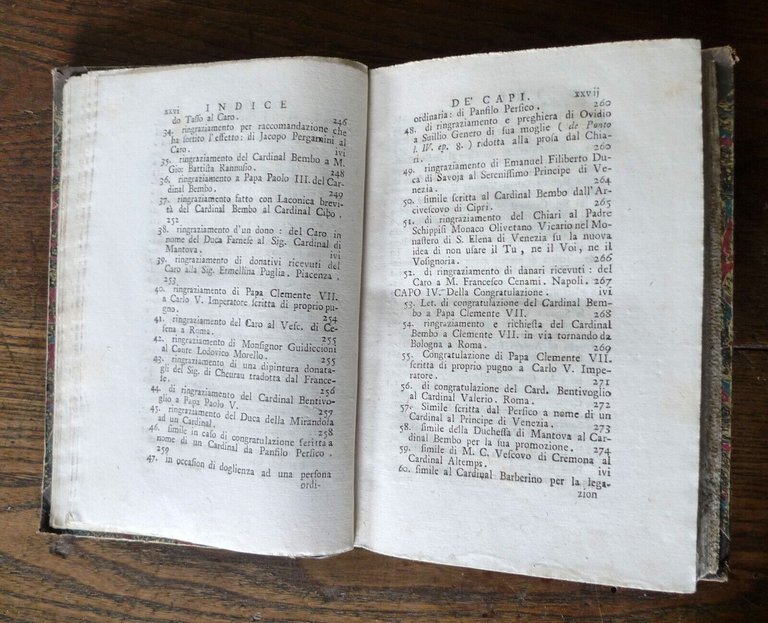 xxvi INDICE
do Tasso al Caro. 246
34. ringraziamento per raccomandazione che
ha sortito l'effetto: di Jacopo Pergamini al
Caro. ivi
35. ringraziamento del Cardinal Bembo a M.
Gio: Battista Rannusio. 248
36. ringraziamento a Papa Paolo III. del Car-
dinal Bembo. 249
37. ringraziamento fatto con Laconica brevi-
tà del Cardinal Bembo al Cardinal Cibo.
252
38. ringraziamento d'un dono: del Caro in
nome del Duca Farnese al Sig. Cardinal di
Mantova. ivi
39. ringraziamento di donativi ricevuti del
Caro alla Sig. Ermellina Puglia. Piacenza.
253
40. ringraziamento di Papa Clemente VII.
a Carlo V. Imperatore scritta di proprio pu-
gno. 254
41. ringraziamento del Caro al Vesc. di Ce-
sena a Roma. 255
42. ringraziamento di Monsignor Guidiccioni
al Conte Lodovico Morello. 255
43. ringraziamento di una dipintura donata-
gli del Sig. di Cheurau tradotta dal France-
se. 256
44. di ringraziamento del Cardinal Bentivo-
glio a Papa Paolo V. 257
45. ringraziamento del Duca della Mirandola
ad un Cardinal. 258
46. simile in caso di congratulazione scritta a
nome di un Cardinal da Panfilo Persico.
259
47. in occasion di doglienza ad una persona
ordi-
DE' CAPI. xxvij
ordinaria: di Panfilo Persico. 260
48. di ringraziamento e preghiera di Ovidio
a Suillio Genero di sua moglie (de Ponto
l. IV. ep. 8.) ridotta alla prosa dal Chia-
ri. 260
49. ringraziamento di Emanuel Filiberto Du-
ca di Savoja al Serenissimo Principe di Ve-
nezia. 264
50. simile scritta al Cardinal Bembo dall'Ar-
civescovo di Cipri. 265
51. di ringraziamento del Chiari al Padre
Schippisi Monaco Olivetano Vicario nel Mo-
nastero di S. Elena di Venezia su la nuova
idea di non usare il Tu, ne il Voi, ne il
Vosignoria. 266
52. di ringraziamento di danari ricevuti: del
Caro a M. Francesco Cenami. Napoli. 267
CAPO IV. Della Congratulazione. ivi
53. Let. di congratulazione del Cardinal Bem-
bo a Papa Clemente VII. 268
54. ringraziamento e richiesta del Cardinal
Bembo a Clemente VII. in via tornando da
Bologna a Roma. 269
55. Congratulazione di Papa Clemente VII.
scritta di proprio pugno a Carlo V. Impe-
ratore. 271
56. di congratulazione del Card. Bentivoglio
al Cardinal Valerio. Roma. 272
57. Simile scritta dal Persico a nome di un
Cardinal al Principe di Venezia. 273
58. simile della Duchessa di Mantova al Car-
dinal Bembo per la sua promozione. 274
59. simile di M. C. Vescovo di Cremona al
Cardinal Altemps. ivi
60. simile al Cardinal Barberino per la lega-
zion